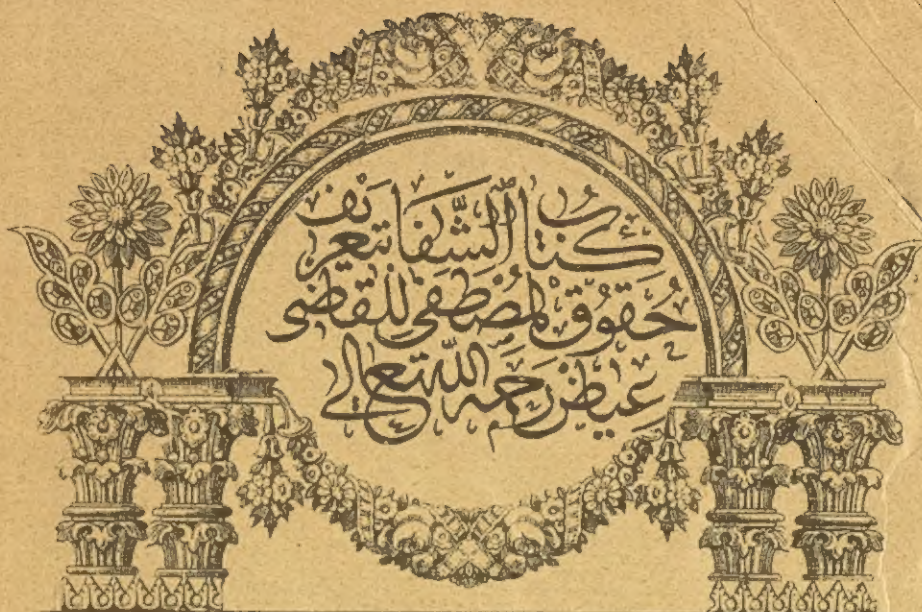 كتاب الشفا بتعريف
حُقوق المُصْطَفَى للقاضى
عياض رحمه الله تعالى